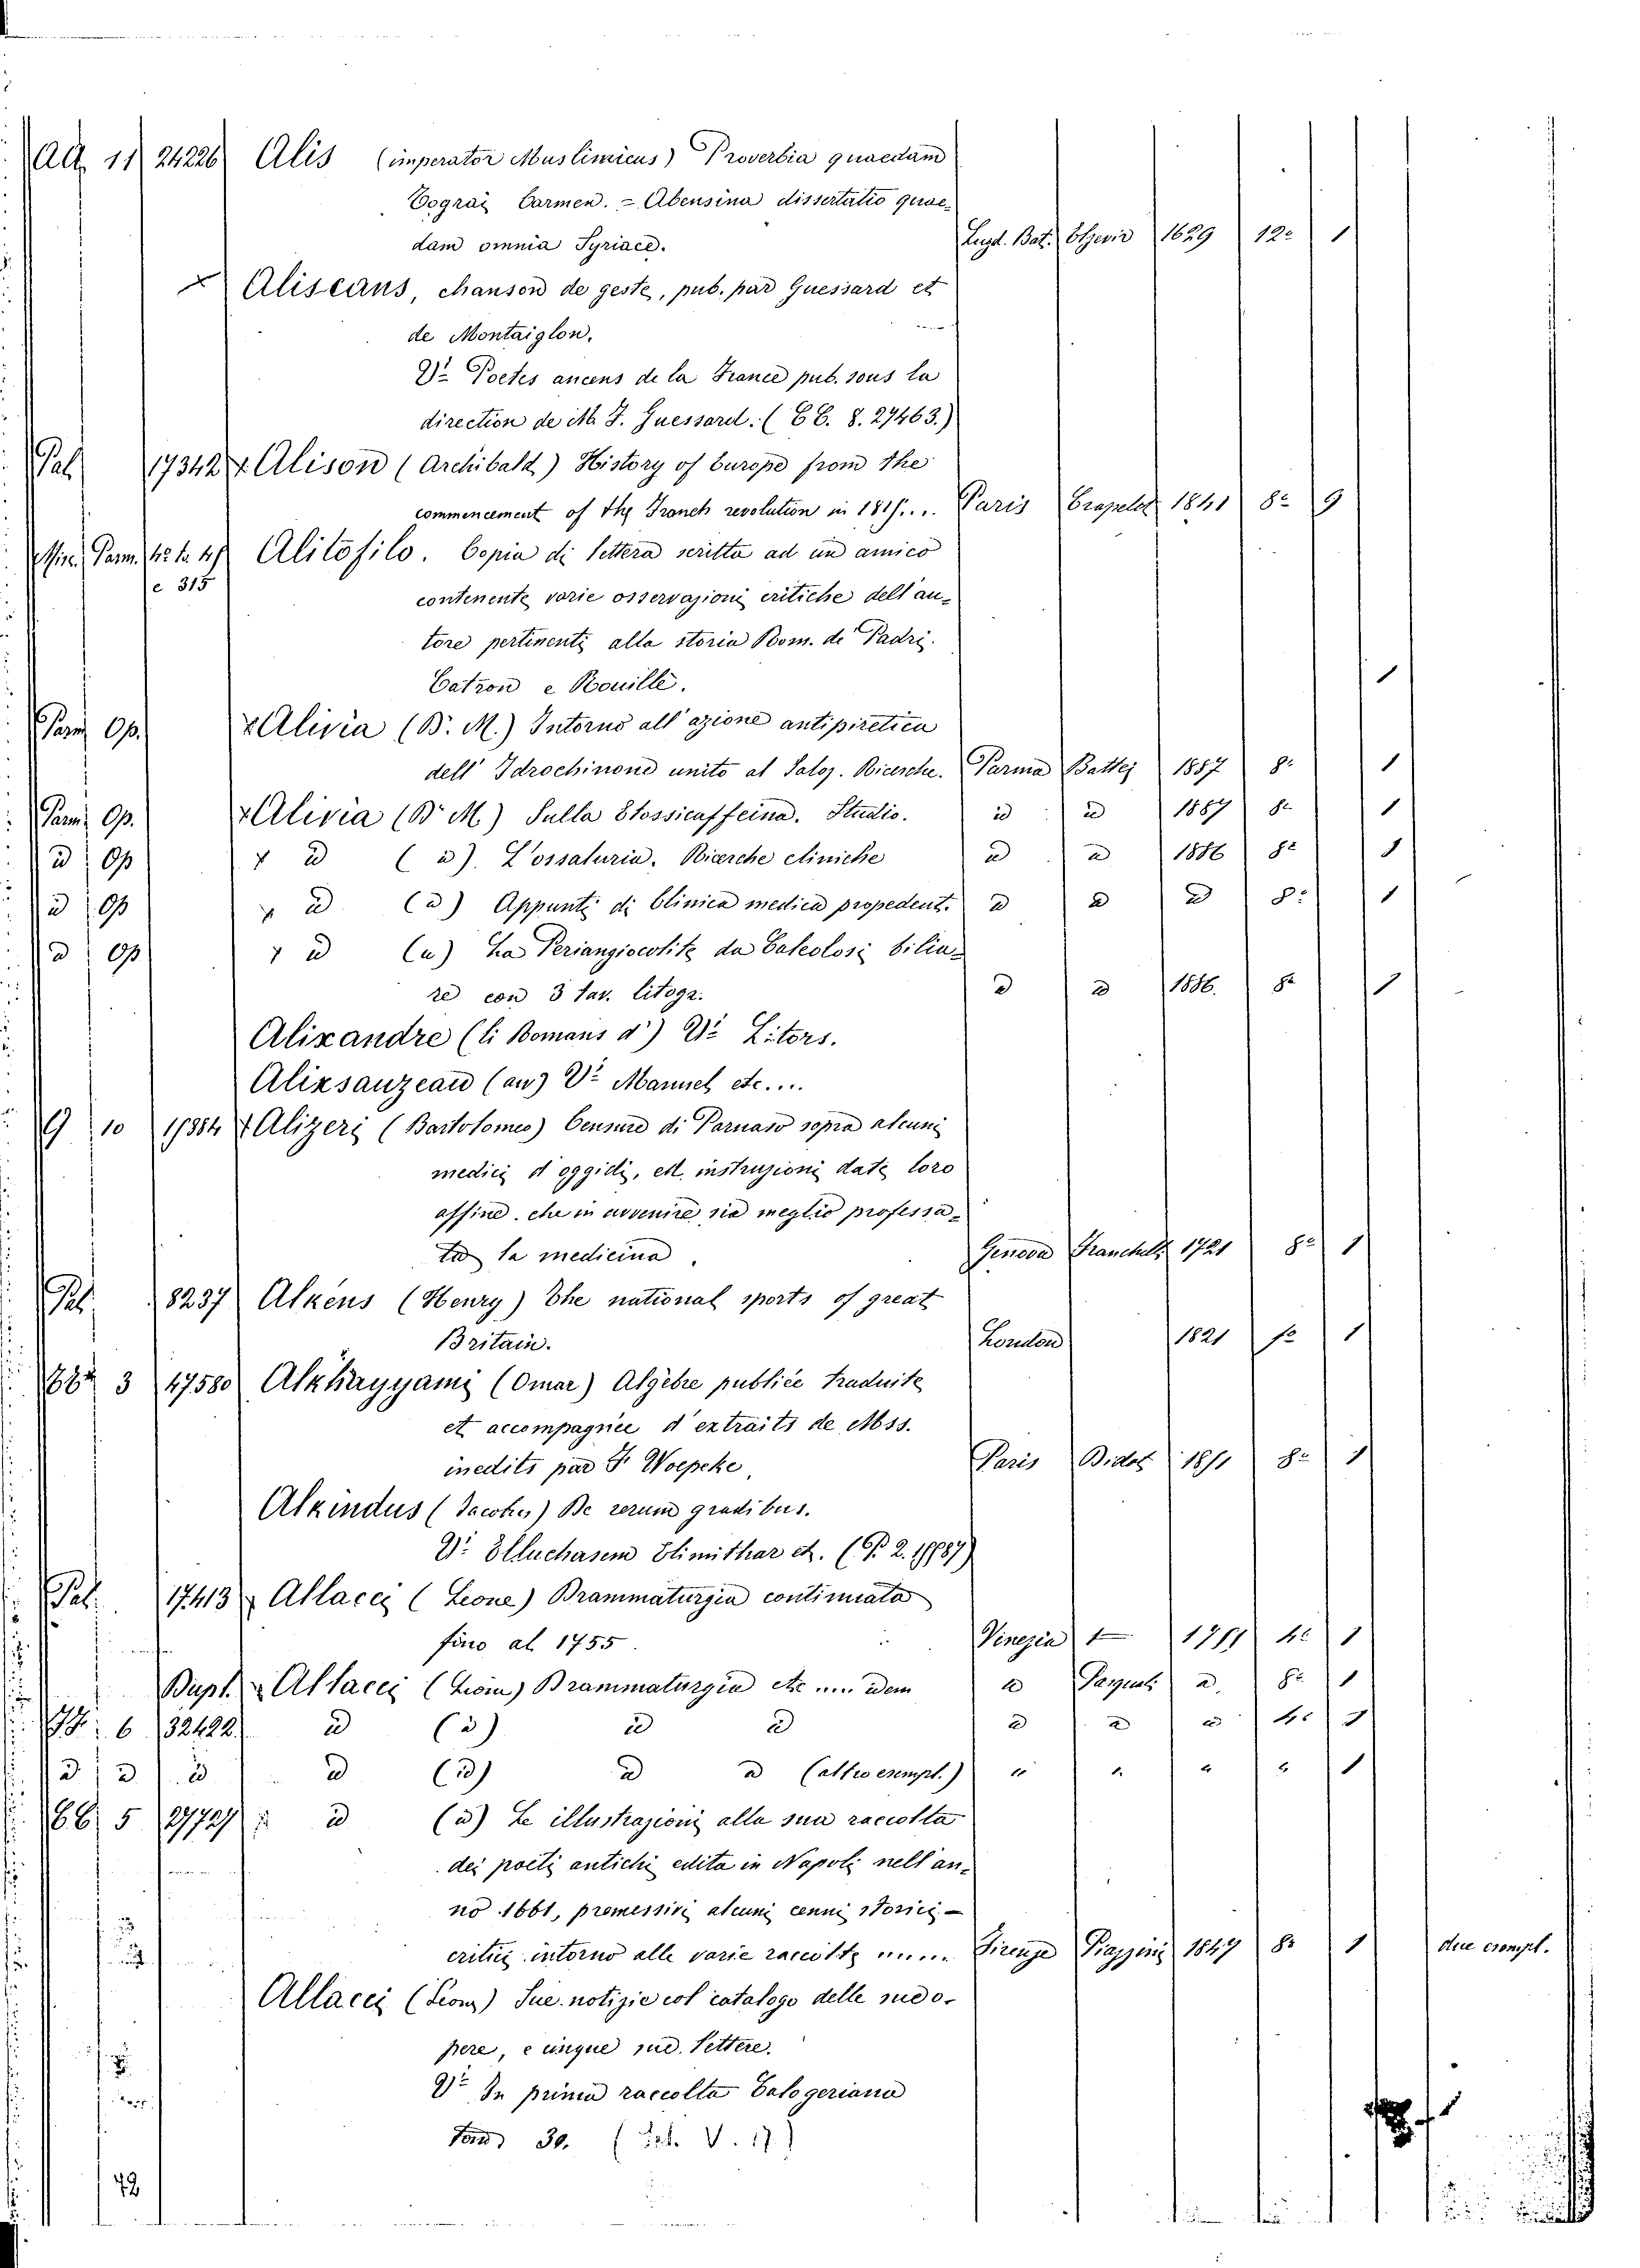 AA 11 24226 Alis (imperator Muslimicus) Proverbia quaedam
Togray Carmen. = Abensina dissertatio quae-
dam omnia Syriace. Lugd. Bat. Elzevir 1629 12º 1
x Aliscans, chanson de geste, pub. par Guessard et
de Montaiglon.
Vº Poetes ancens de la France pub. sous la
direction de M. F. Guessard. (BB. 8. 27463.)
Pal. 17342 x Alison (Archibald) History of Europe from the
commencement of the French revolution in 181.... Paris Crapelet 1841 8º 9
Misc. Parm. 4º t. 47 Alitofilo. Copia di lettera scritta ad un amico
e 315 contenente varie osservazioni critiche dell'au-
tore pertinenti alla storia Rom. de' Padri
Catron e Rouille. 1
Parm. Op. x Alivia (B. M.) Intorno all'azione antipiretica
dell'Idrochinone unito al Saloz. Ricerche. Parma Battei 1887 8º 1
Parm. Op. x Alivia (B. M.) Sulla Etossicaffeina. Studio. id id 1887 8º 1
id Op x id (id). L'ossaluria. Ricerche cliniche id id 1886 8º 1
id Op x id (id) Appunti di Clinica medica propedeut. id id id 8º 1
id Op x id (id) La Periangiocolite da Calcolosi bilia-
re con 3 tav. litogr. id id 1886. 8º 1
Alixandre (li Romans d') Vº Litors.
Alixsauzeau (au) Vº Manuel etc....
G 10 11384 x Alizeri (Bartolomeo) Censure di Parnaso sopra alcuni
medici d'oggidi, ed instruzioni date loro
affine che in avvenire sia meglio professa-
ta la medicina. Genova Franchelli 1721 8º 1
Pal. 8237 Alkens (Henry) The national sports of great
Britain. London 1821 fº 1
BB 3 47580 Alkhayyami (Omar) Algèbre publiée traduite
et accompagnée d'extraits de Mss.
inedits par F. Woepcke. Paris Didot 1851 8º 1
Alkindus (Jacobus) De rerum gradibus.
Vº Elluchasem Elimithar et. (P. 2. 19987)
Pal. 17413 x Allacci (Leone) Drammaturgia continuata
fino al 1755. Vinezia 1755 4º 1
Dupl. x Allacci (Leoni) Drammaturgia etc .... idem id Pasquali id. 8º 1
6 32422 id (id) id id id id id 4º 1
id id id id (id) id id (altro esempl.) " " " " 1
BB 5 27727 x id (id) Le illustrazioni alla sua raccolta
dei poeti antichi edita in Napoli nell'an-
no 1661, premessivi alcuni cenni storici-
critici intorno alle varie raccolte ..... Firenze Piazzini 1847 8º 1 due esempl.
Allacci (Leon) Sue notizie col catalogo delle sue o-
pere, e cinque sue lettere.
Vº In prima raccolta Calogeriana
Tomo 30. (Pal. V. 17)
42